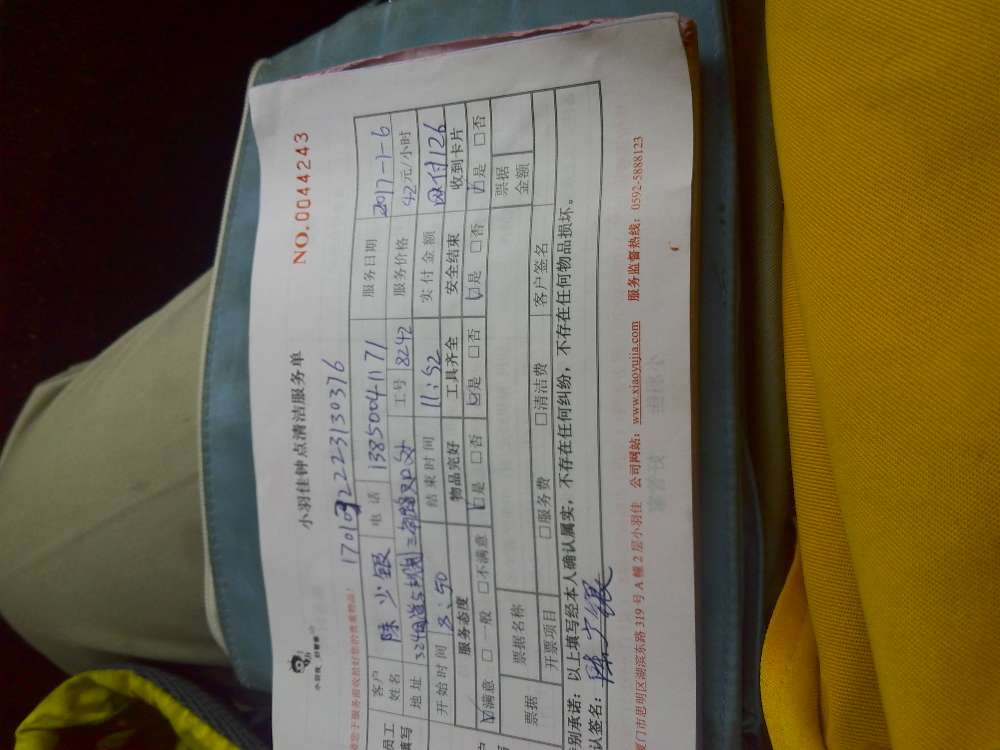 小羽佳 好管家
小羽佳钟点清洁服务单
NO.0044243
请您于服务前收拾好您的贵重物品！
17010922223130376
员工填写 客户姓名 陈少银 电话 13850041171 服务日期 2017-1-6
地址 工号 8242 服务价格 42元/小时
开始时间 8:50 结束时间 11:52 实付金额 网付126
服务态度 物品完好 工具齐全 安全结束 收到卡片
☑满意 □一般 □不满意 ☑是 □否 ☑是 □否 ☑是 □否 ☑是 □否
票据 票据名称 票据金额
开票项目 □服务费 □清洁费 客户签名
特别承诺：以上填写经本人确认属实，不存在任何纠纷，不存在任何物品损坏。
认签名：陈少银
厦门市思明区湖滨东路 319 号 A 幢 2 层小羽佳 公司网站：www.xiaoyujia.com 服务监督热线：0592-5888123